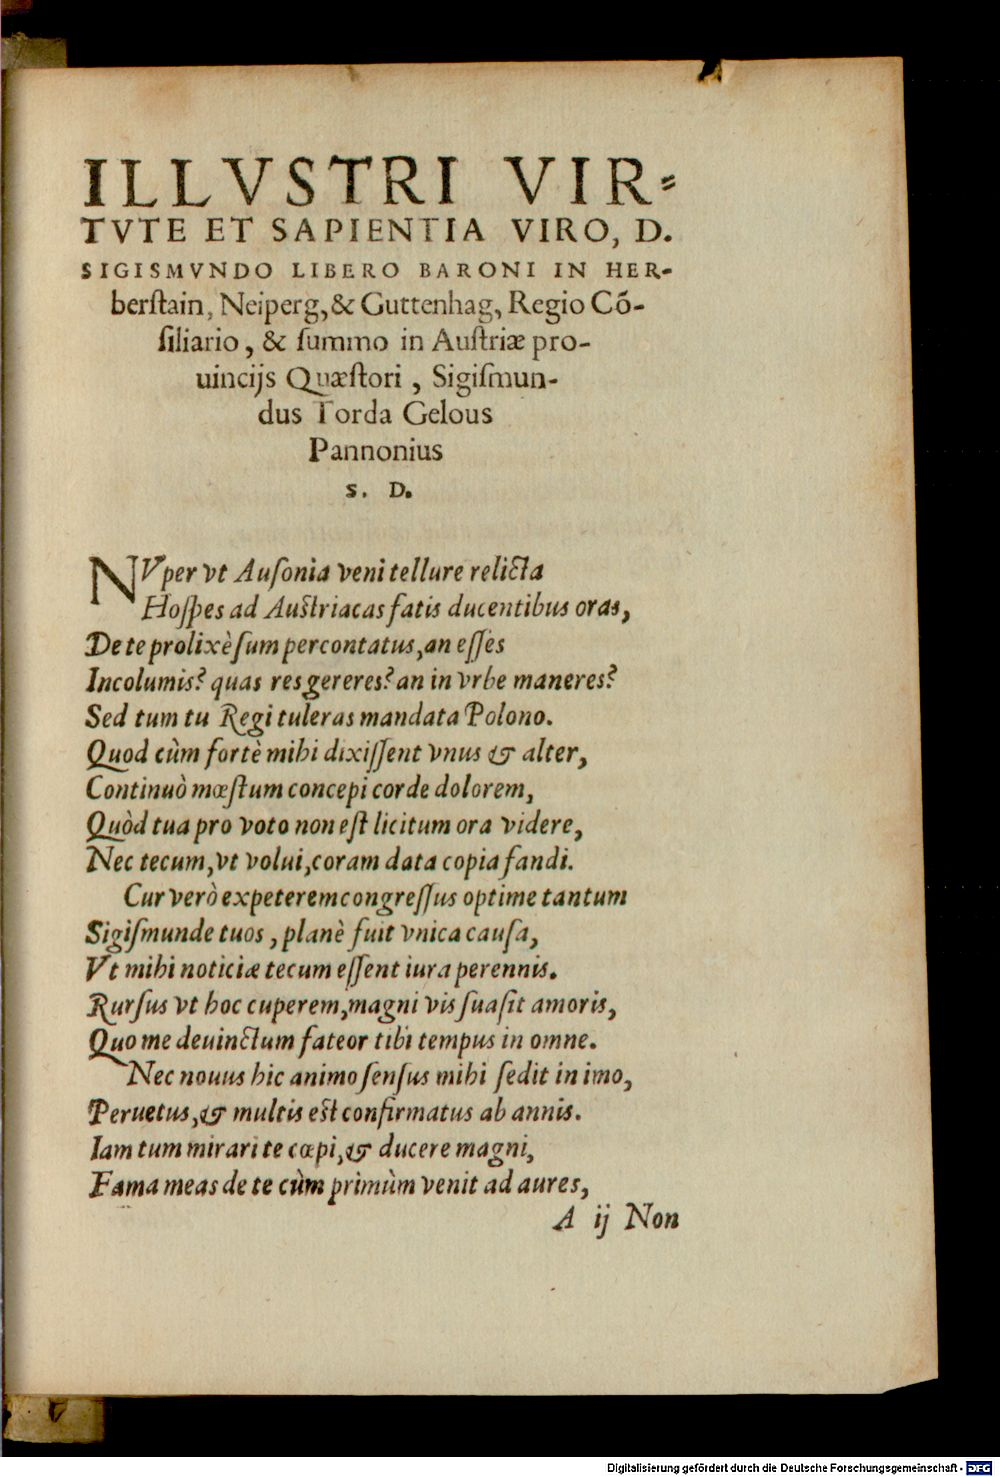 ILLVSTRI VIR-
TVTE ET SAPIENTIA VIRO, D.
SIGISMVNDO LIBERO BARONI IN HER-
berſtain, Neiperg, & Guttenhag, Regio Cõ-
ſiliario, & ſummo in Auſtriæ pro-
uincijs Quæſtori, Sigiſmun-
dus Torda Gelous
Pannonius
S. D.
NVper vt Auſonia veni tellure relicta
Hoſpes ad Auſtriacas fatis ducentibus oras,
De te prolixè ſum percontatus, an eſſes
Incolumis? quas res gereres? an in vrbe maneres?
Sed tum tu Regi tuleras mandata Polono.
Quod cùm fortè mihi dixiſſent vnus & alter,
Continuò mœſtum concepi corde dolorem,
Quòd tua pro voto non eſt licitum ora videre,
Nec tecum, vt volui, coram data copia fandi.
Cur verò expeterem congreſſus optime tantum
Sigiſmunde tuos, planè fuit vnica cauſa,
Vt mihi noticiæ tecum eſſent iura perennis.
Rurſus vt hoc cuperem, magni vis ſuaſit amoris,
Quo me deuinctum fateor tibi tempus in omne.
Nec nouus hic animo ſenſus mihi ſedit in imo,
Peruetus, & multis eſt confirmatus ab annis.
Iam tum mirari te cœpi, & ducere magni,
Fama meas de te cùm prìmùm venit ad aures,
A ij Non
Digitalisierung gefördert durch die Deutsche Forschungsgemeinschaft - DFG